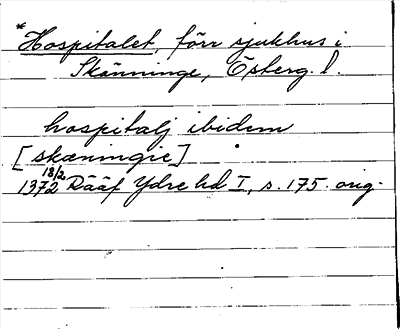 *Hospitalet, förr sjukhus i
Skänninge, Österg. l.
hospitalj ibidem
[skæningie]
1372 18/2 Rääf Ydre hd I, s. 175. orig.